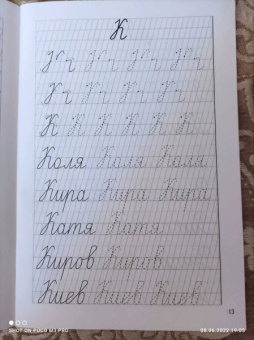 К
К К К К К К
Коля Коля Коля
Кира Кира Кира
Катя Катя
Киров Киров
Киев Киев Киев
13
SHOT ON POCO M3 PRO
08.06.2022 19:05